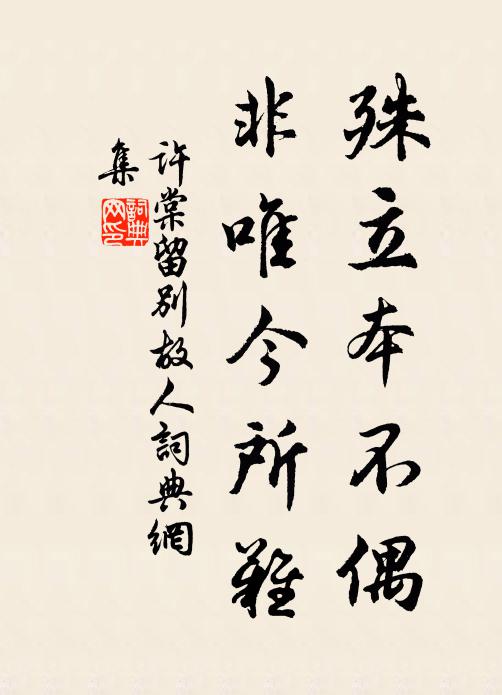 殊立本不偶
非唯今所難
許棠留別故人詞典網
集
詞典
网印